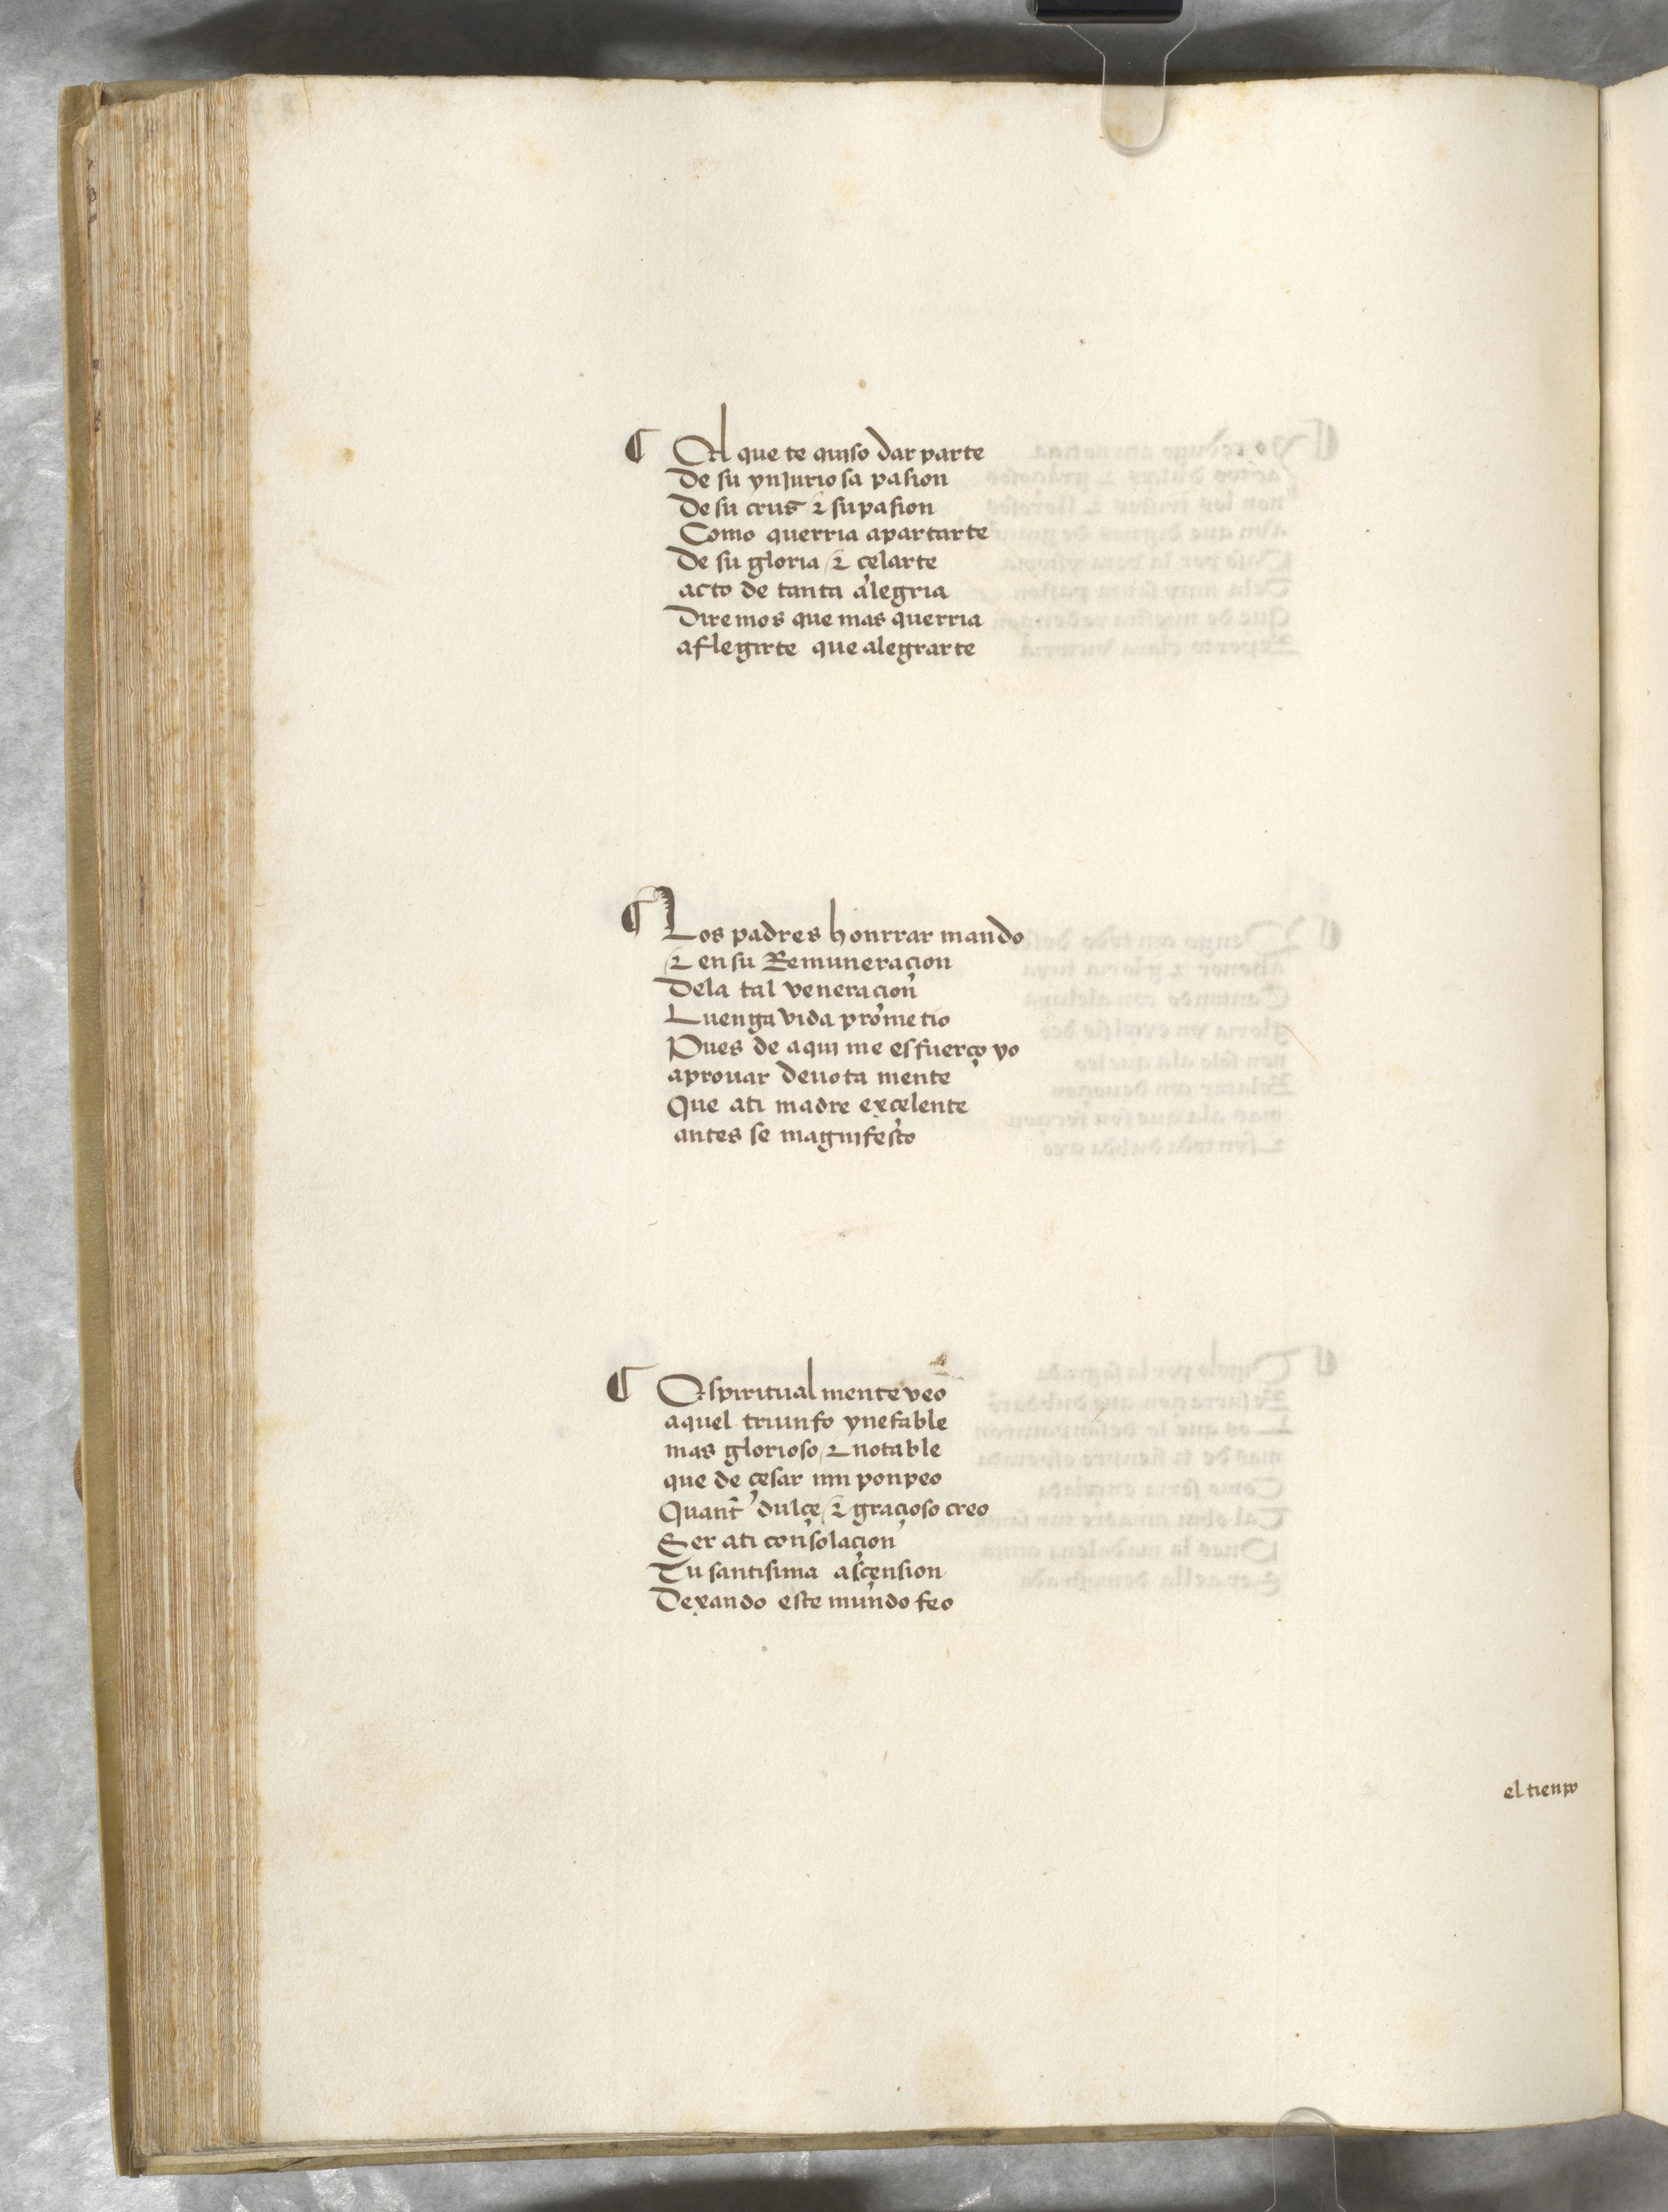 ¶ Al que te quiso dar parte
De su ynJuriosa pasion
De su crus ⁊ su pasion
Como querria apartarte
De su gloria ⁊ çelarte
acto de tanta alegria
Diremos que mas querria
aflegirte que alegrarte
¶ Los padres honrrar mando
⁊ en su Remuneraçion
Dela tal veneraçion
Luenga vida prometio
Pues de aqui me esfuerço yo
aprouar deuota mente
Que ati madre exçelente
antes se magnifesto
¶ Espiritual mente veo
aquel triunfo ynefable
mas glorioso ⁊ notable
que de çesar nin ponpeo
Quant dulçe ⁊ graçioso creo
Ser ati consolaçion
Tu santisima asçension
Dexando este mundo feo
el tienpo